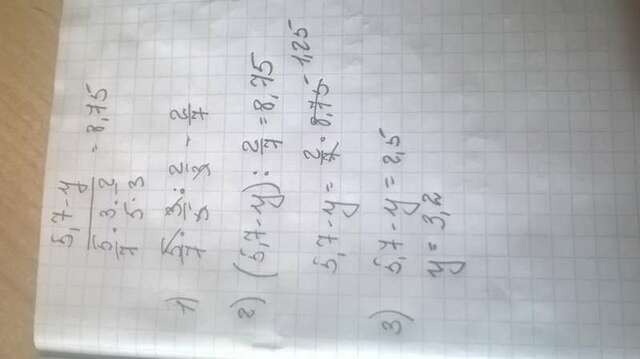 5,7-y / (5/7 · 3/5 · 2/3) = 8,75
1) 5/7 · 3/5 · 2/3 - 2/7
2) (5,7-y) : 2/7 = 8,75
5,7-y = 2/7 · 8,75 - 1,25
3) 5,7-y = 2,5
y = 3,2